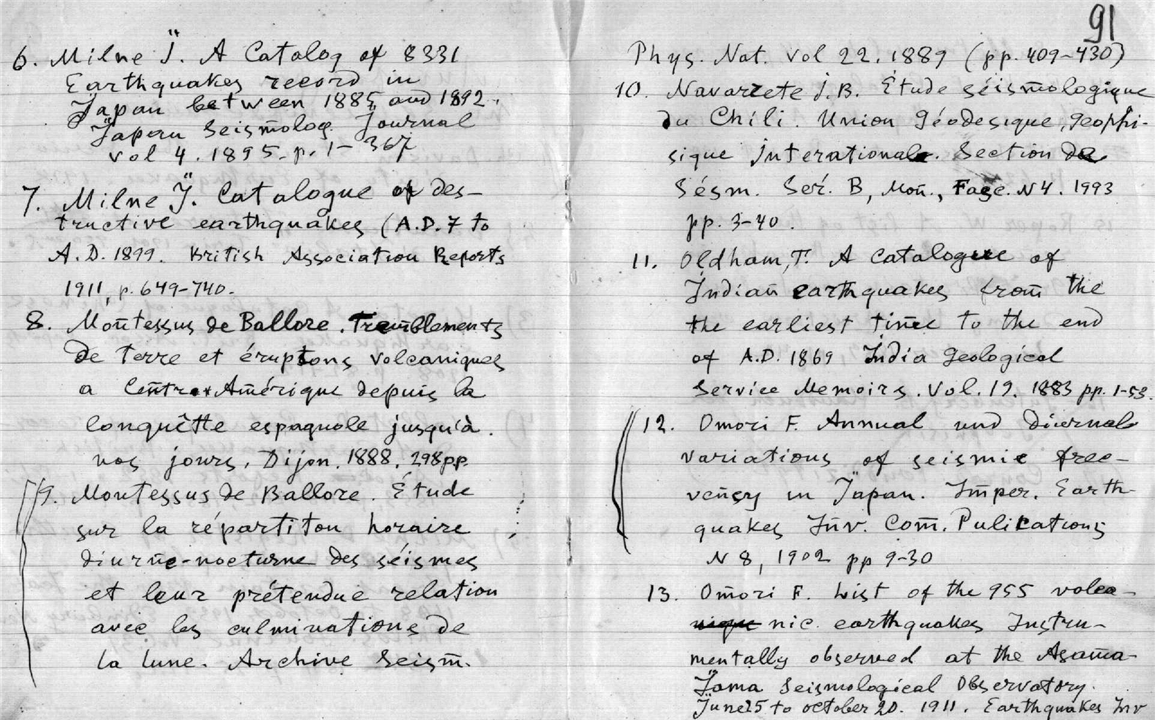 6. Milne J. A Catalog of 8331
Earthquakes record in
Japan between 1885 and 1892.
Japan Seismolog. Journal
vol 4. 1895. p. 1-367
7. Milne J. Catalogue of des-
tructive earthquakes (A.D. 7 to
A.D. 1899. British Association Reports
1911, p. 649-740.
8. Montessus de Ballore. Tremblements
de terre et éruptons volcaniques
a Centre Amérique depuis la
conquêtte espagnole jusqu'à
nos jours, Dijon. 1888, 298pp.
9. Montessus de Ballore. Étude
sur la répartiton horaire
diurne-nocturne des séismes
et leur prétendue relation
avec les culminations de
la lune. Archive Seism.
91
Phys. Nat. vol 22. 1889 (pp. 409-430)
10. Navarzete J.B. Étude séismologique
du Chili. Union Géodesique, geophi-
sique interationale. Section de
Sésm. Ser. B, Mon., Fasc. N4. 1993
pp. 3-40.
11. Oldham, T. A Catalogue of
Indian earthquakes from the
the earliest time to the end
of A.D. 1869, India Geological
Service Memoirs. Vol. 19. 1883 pp. 1-53.
12. Omori F. Annual und diurnal
variations of seismic free-
vency in Japan. Imper. Earth-
quakes Inv. Com. Pulications
N 8, 1902 pp 9-30
13. Omori F. List of the 955 volca-
nic. earthquakes Instru-
mentally observed at the Asama-
Jama Seismological Observatory.
June 25 to october 20. 1911. Earthquakes Inv